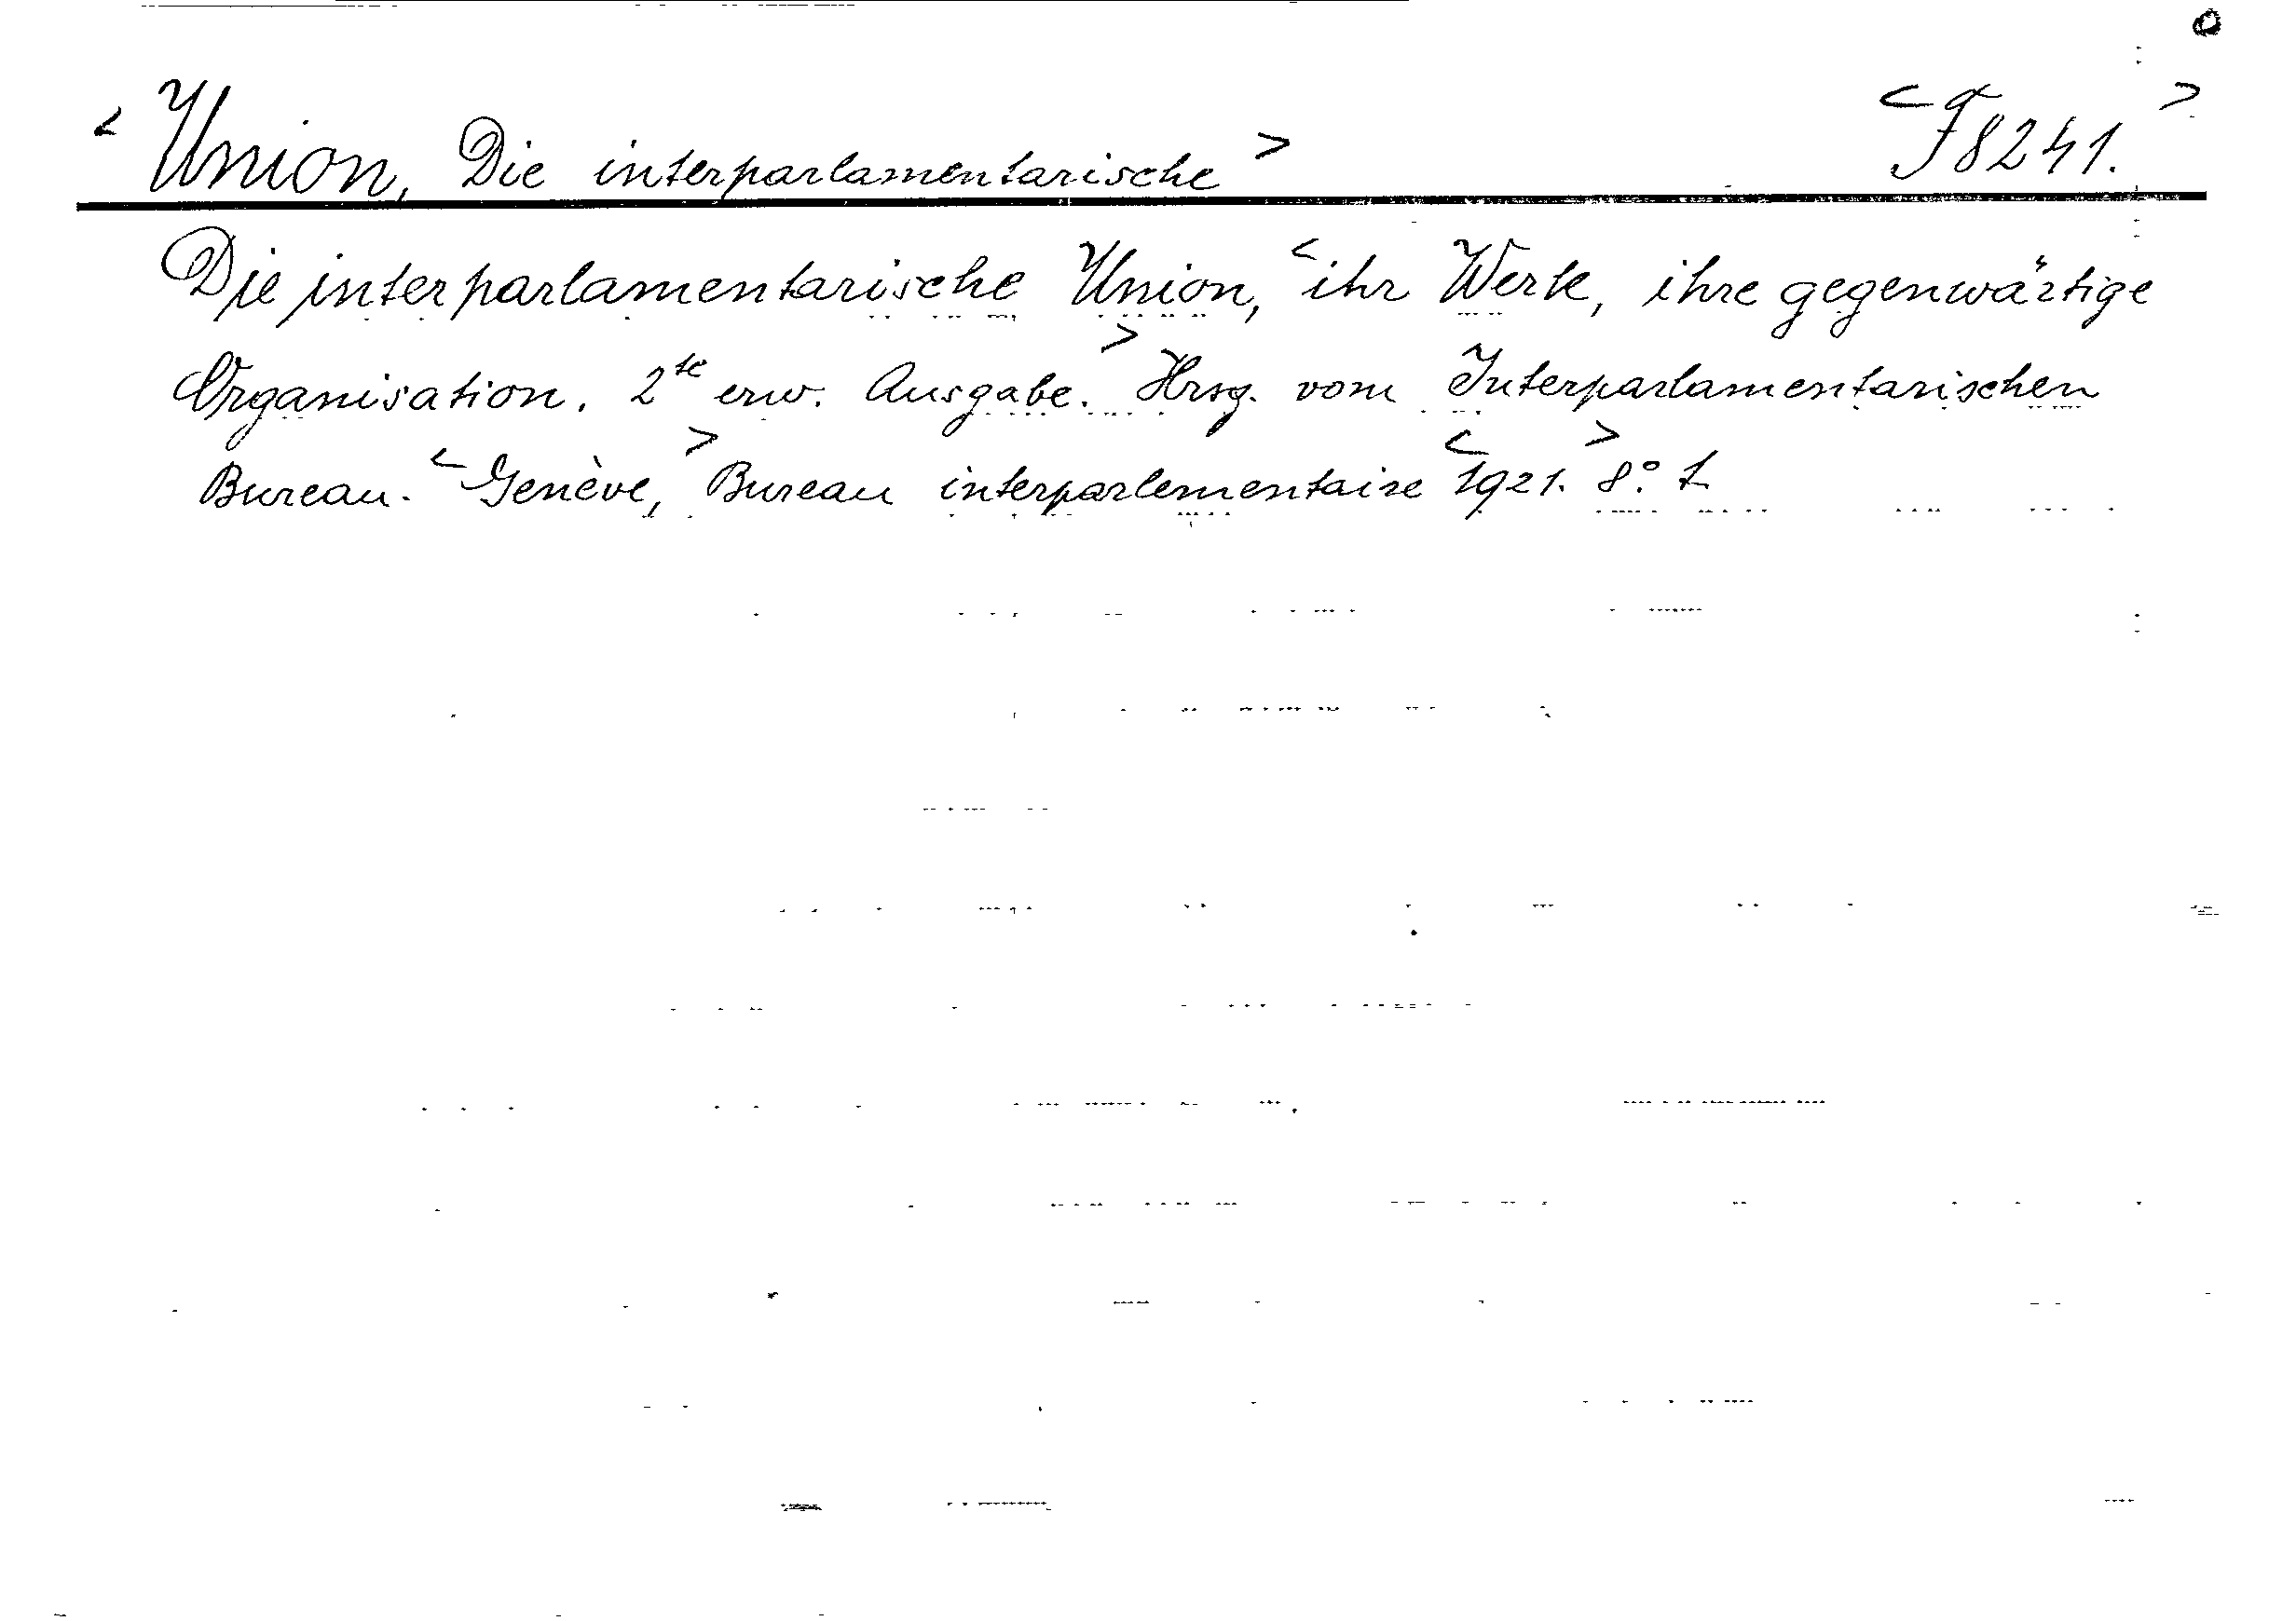 <Union, Die interparlamentarische> <F8241.>
Die interparlamentarische Union, <ihr Werk, ihre gegenwärtige
Organisation. 2te erw. Ausgabe.> Hrsg. vom Interparlamentarischen
Bureau. <Genève,> Bureau interparlementaire <1921.> 8:o 1.